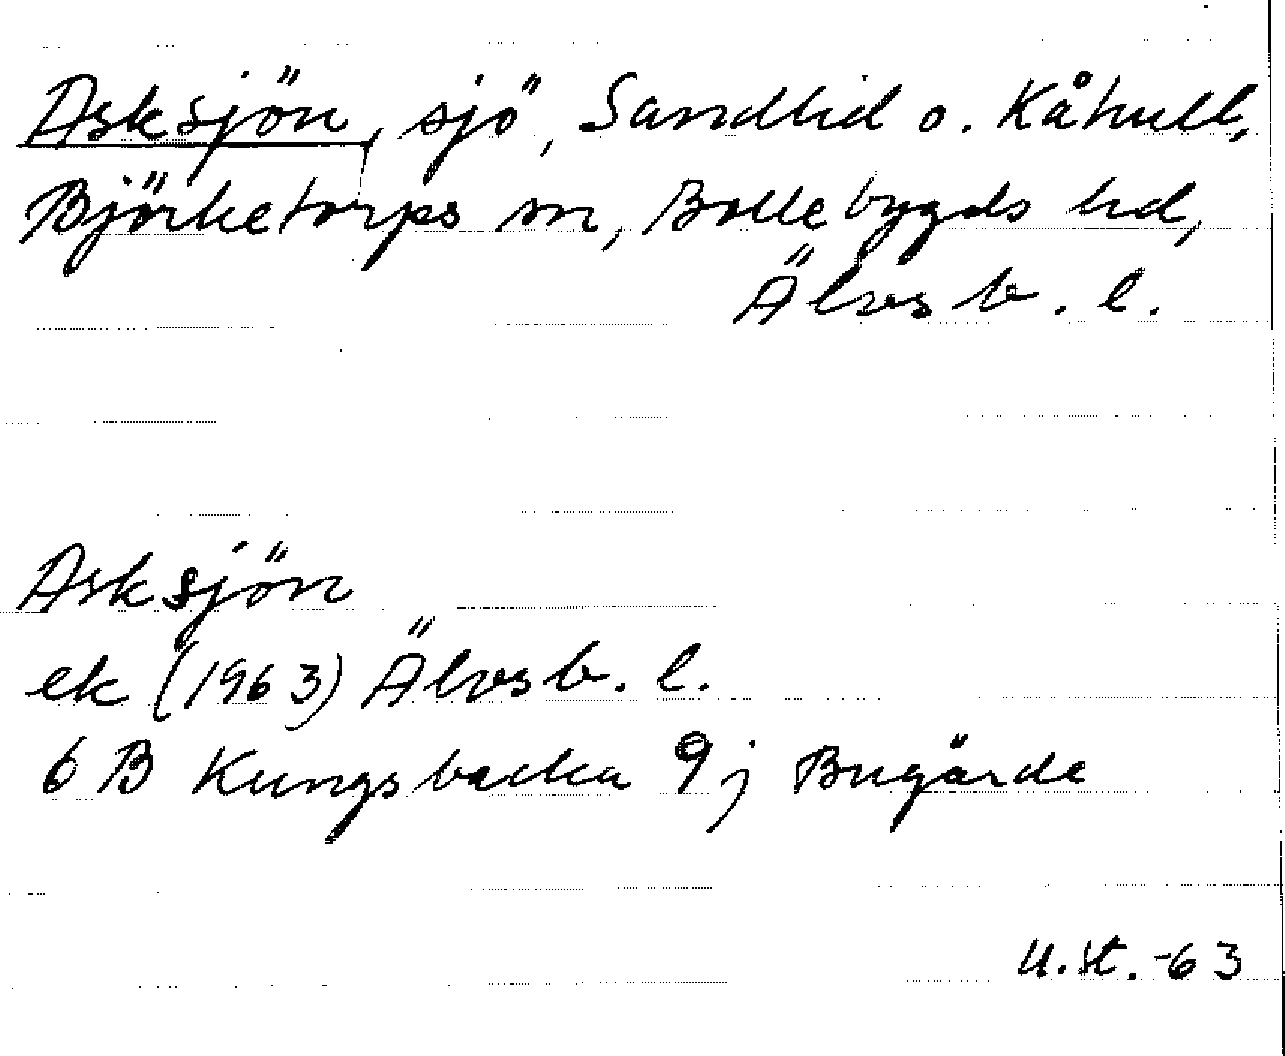 Asksjön, sjö, Sandlid o. Kåhult,
Björketorps sn, Bollebygds hd,
Älvsb. l.
Asksjön
ek (1963) Älvsb. l.
6 B Kungsbacka 9j Bugärde
U.St. -63